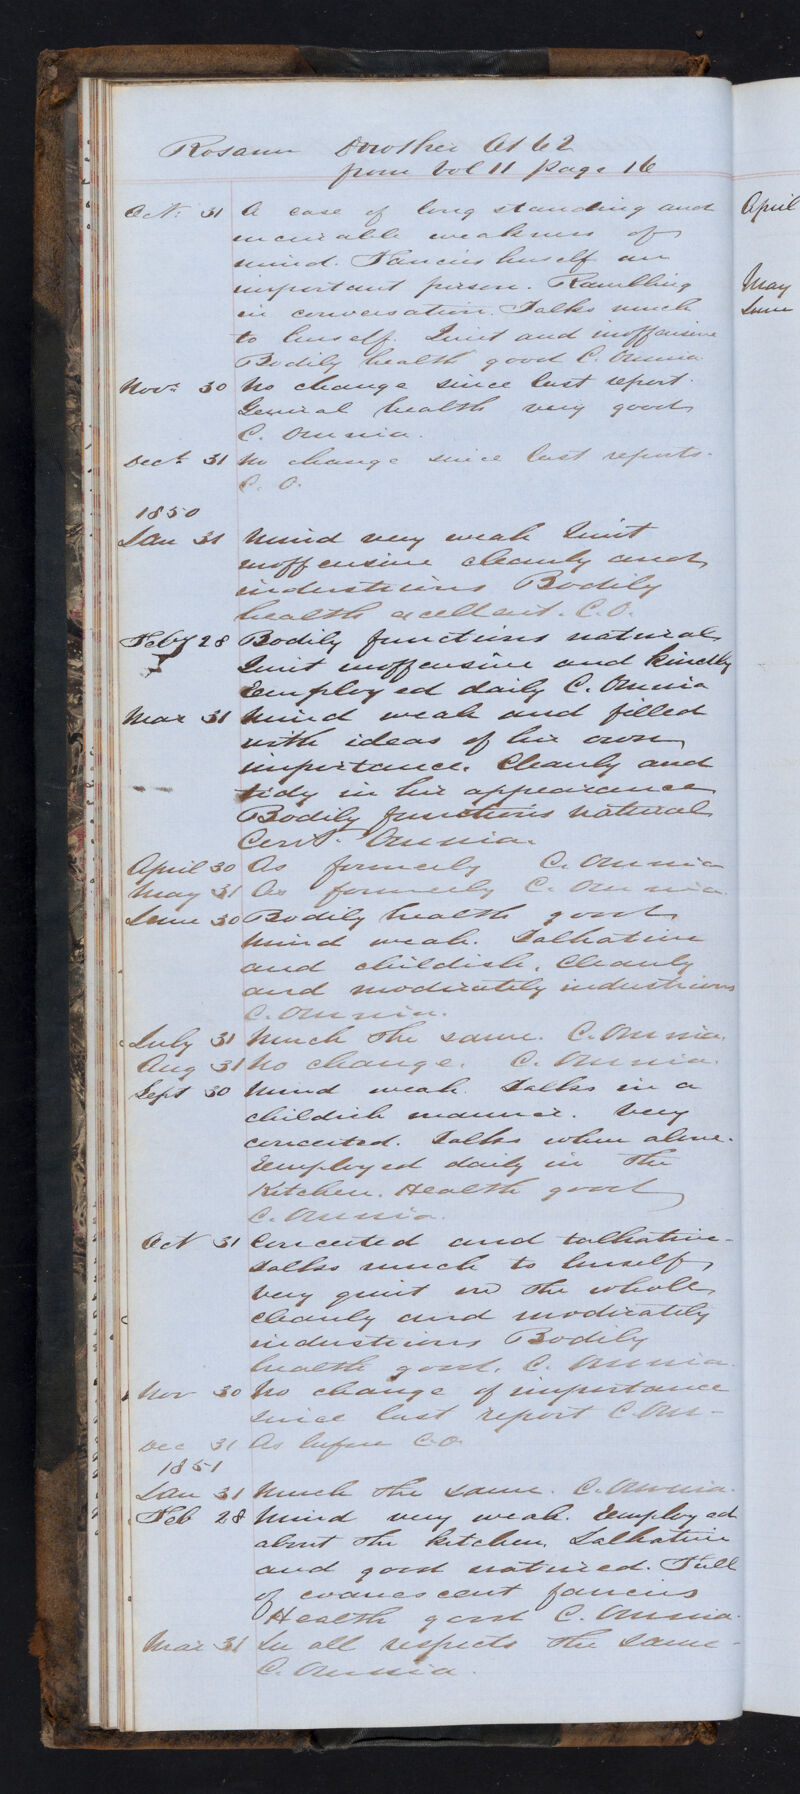 Rosann Dowsher At 62
from Vol 11 page 16
Oct: 31 A case of long standing and
incurable weakness of
mind. Fancies hurself an
important person. Rambling
in conversation. Talks much
to hurself. Quiet and inoffensive
Bodily health good C. Omnia
Novr 30 No change since last report.
General health very good
C. Omnia.
Dect. 31 No change since last reports.
C. O.
1850
Jan 31 Mind very weak Quiet
inoffensive cleanly and
industrious Bodily
health excellent. C.O.
Feby 28 Bodily functions natural
Quiet inoffensive and kindly
Employed daily C. Omnia
Mar 31 Mind weak and filled
with ideas of her own
importance. Cleanly and
tidy in her appearance
Bodily functions natural
Cert. Omnia.
April 30 As formerly C. Omnia
May 31 As formerly C. Omnia.
June 30 Bodily health good
Mind weak. Talkative
and childish. Cleanly
and moderately industrious
C. Omnia.
July 31 Much the same. C. Omnia.
Aug 31 No change. C. Omnia.
Sept 30 Mind weak. Talks in a
childish manner. Very
conceited. Talks when alone.
Employed daily in the
Kitchen. Health good
C. Omnia.
Oct 31 Conceited and talkative-
Talks much to hurself
very quiet on the whole
cleanly and moderately
industrious Bodily
health good. C. Omnia.
Nov 30 No change of importance
since last report C. Om-
Dec 31 As before C.O
1851
Jan 31 Much the same. C. Omnia.
Feb 28 Mind very weak. Employed
about the kitchen. Talkative
and good natured. Full
of evanescent fancies
Health good C. Omnia.
Mar 31 In all respects the same-
C. Omnia.
April
May
June